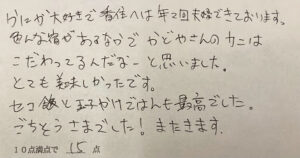 かにが大好きで香住へは年で2回夫婦できております。
色んな宿があるなかで かどやさんのカニは
こだわってるんだなーと思いました。
とても美味しかったです。
セコ飯と玉子かけごはんも最高でした。
ごちそうさまでした！またきます。
10点満点で 15 点